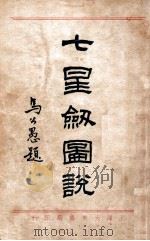 七星劍圖說
馬公愚題